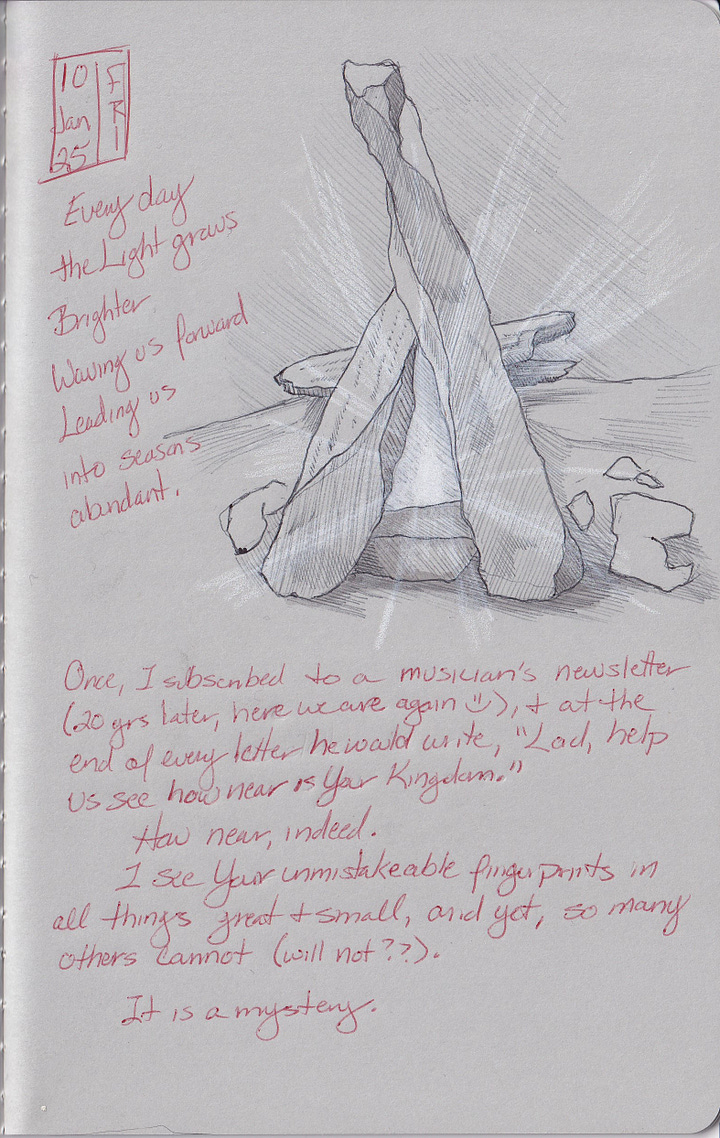 10
Jan
25
FRI
Every day
the Light grows
Brighter
Waving us forward
Leading us
into seasons
abundant.
Once, I subscribed to a musician's newsletter
(20 yrs later, here we are again ☺), + at the
end of every letter he would write, "Lord, help
us see how near is Your Kingdom."
How near, indeed.
I see Your unmistakeable fingerprints in
all things great + small, and yet, so many
others cannot (will not??).
It is a mystery.